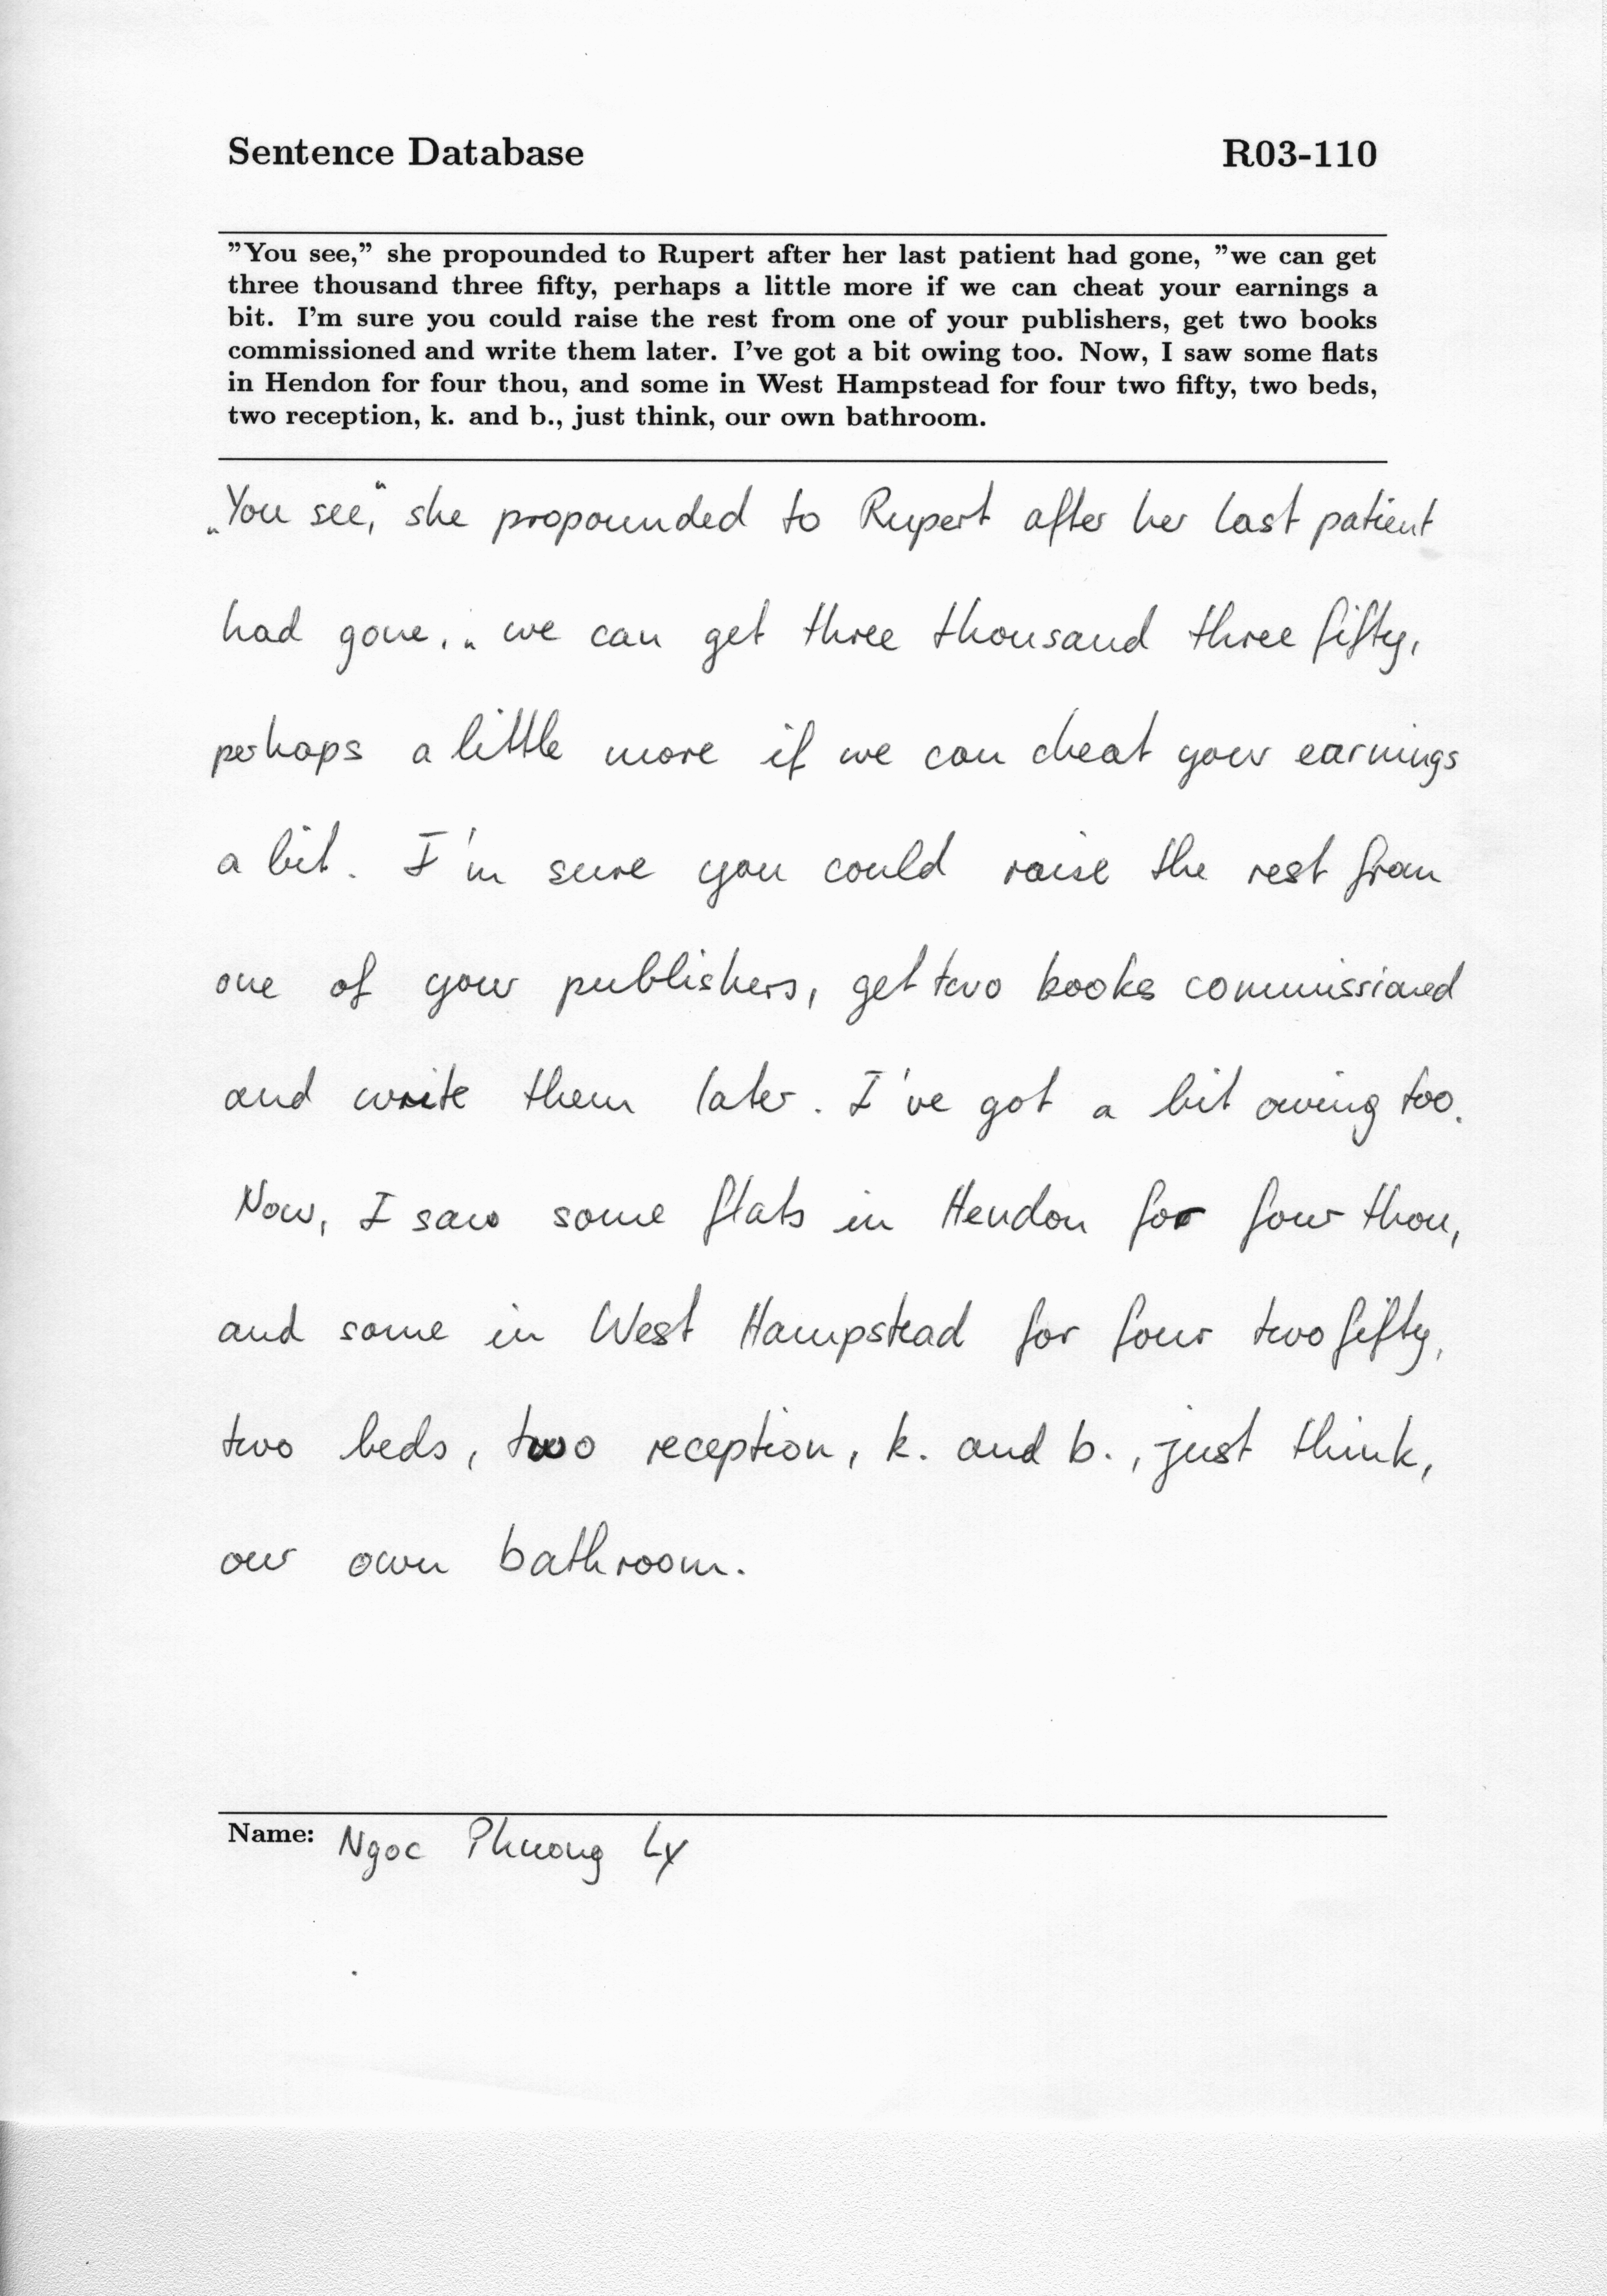 Sentence Database R03-110
"You see," she propounded to Rupert after her last patient had gone, "we can get
three thousand three fifty, perhaps a little more if we can cheat your earnings a
bit. I'm sure you could raise the rest from one of your publishers, get two books
commissioned and write them later. I've got a bit owing too. Now, I saw some flats
in Hendon for four thou, and some in West Hampstead for four two fifty, two beds,
two reception, k. and b., just think, our own bathroom.
„You see,“ she propounded to Rupert after her last patient
had gone, „we can get three thousand three fifty,
perhaps a little more if we can cheat your earnings
a bit. I'm sure you could raise the rest from
one of your publishers, get two books commissioned
and write them later. I've got a bit owing too.
Now, I saw some flats in Hendon for four thou,
and some in West Hampstead for four two fifty,
two beds, two reception, k. and b., just think,
our own bathroom.
Name: Ngoc Phuong Ly